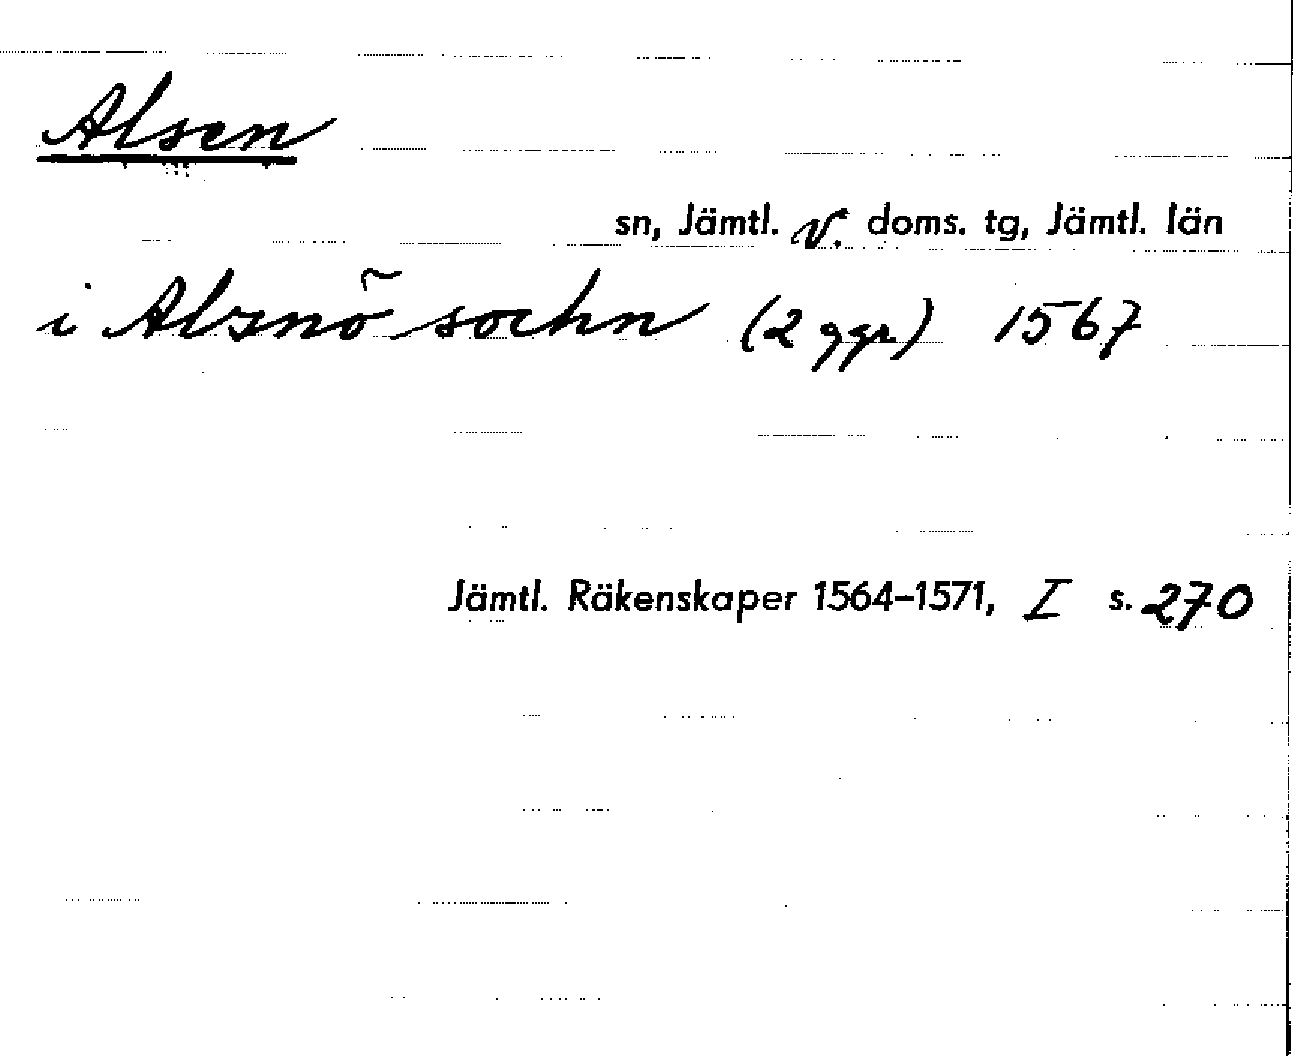 Alsen
sn, Jämtl. v. doms. tg, Jämtl. län
i Alsnö sochn (2 ggr) 1567
Jämtl. Räkenskaper 1564–1571, I s. 270